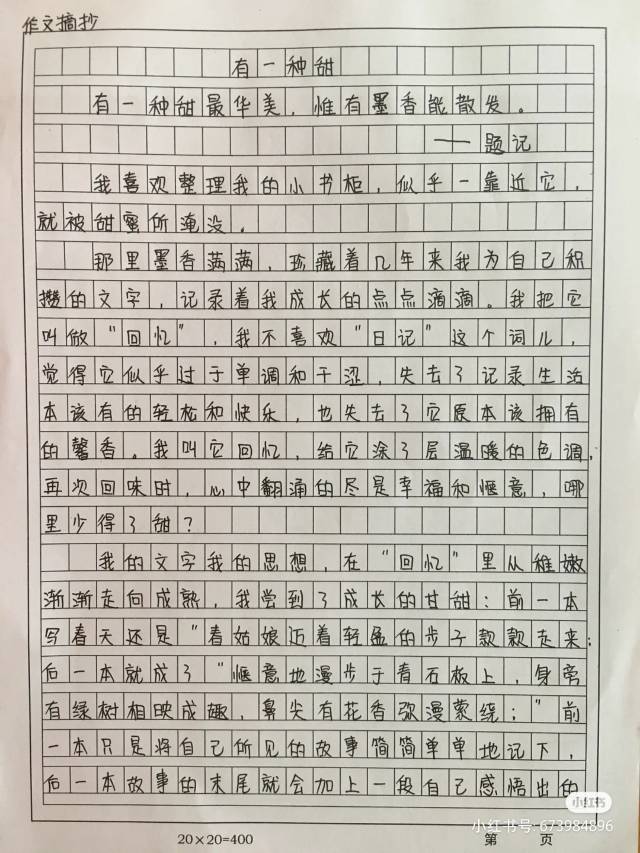 作文摘抄
有一种甜
有一种甜最华美，惟有墨香能散发。
——题记
我喜欢整理我的小书柜，似乎一靠近它，
就被甜蜜所淹没。
那里墨香满满，珍藏着几年来我为自己积
攒的文字，记录着我成长的点点滴滴。我把它
叫做“回忆”，我不喜欢“日记”这个词儿，
觉得它似乎过于单调和干涩，失去了记录生活
本该有的轻松和快乐，也失去了它原本该拥有
的馨香。我叫它回忆，给它涂了层温暖的色调，
再次回味时，心中翻涌的尽是幸福和惬意，哪
里少得了甜？
我的文字我的思想，在“回忆”里从稚嫩
渐渐走向成熟，我尝到了成长的甘甜：前一本
写春天还是“春姑娘迈着轻盈的步子款款走来；
后一本就成了“惬意地漫步于青石板上，身旁
有绿树相映成趣，鼻尖有花香弥漫萦绕；”前
一本只是将自己所见的故事简简单单地记下，
后一本故事的末尾就会加上一段自己感悟出的
小红书
小红书号: 673984896
20×20=400 第 页